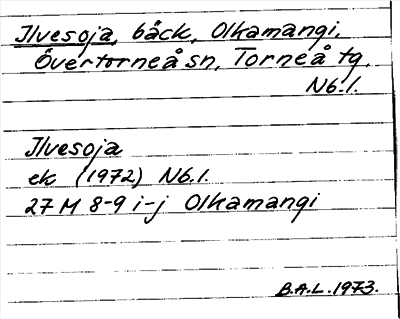 Ilvesoja, bäck, Olkamangi,
Övertorneå sn, Torneå tg.
Nb.l.
Ilvesoja
ek (1972) Nb.l.
27 M 8-9 i-j Olkamangi
B.A.L. 1973.